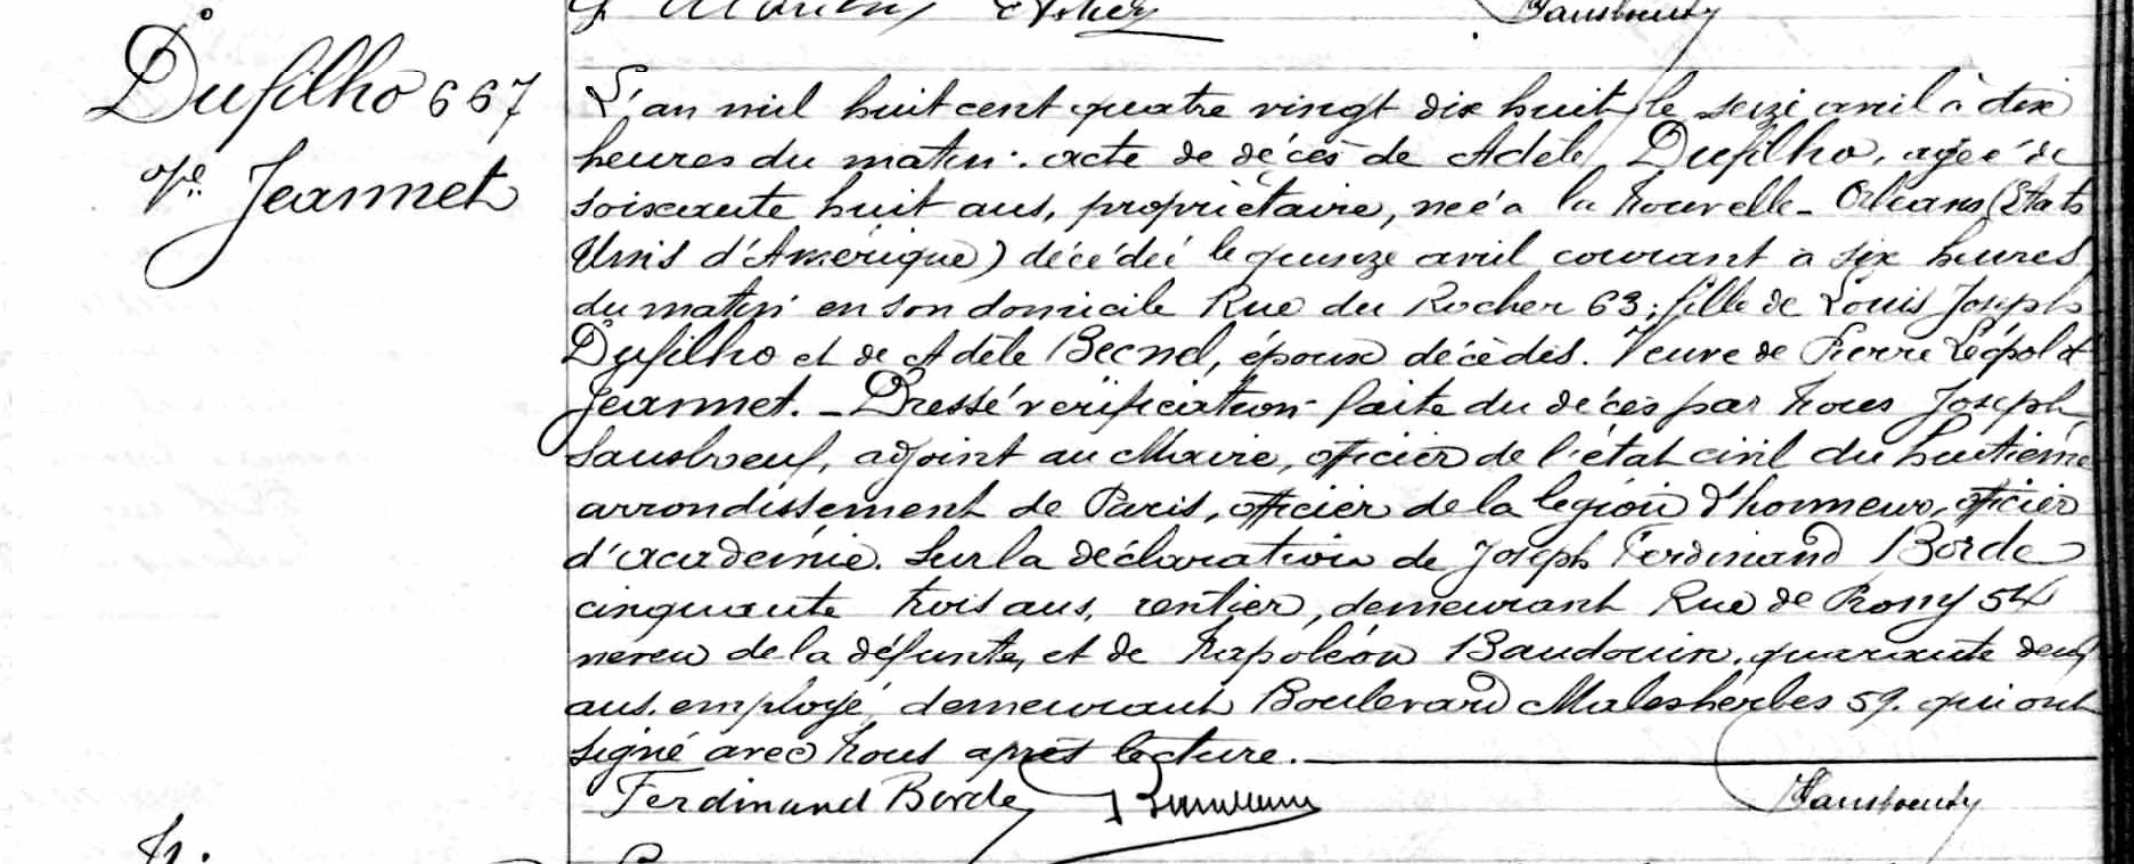 Dufilho 667
Vve Jeannet
L'an mil huit cent quatre vingt dix huit le seize avril à dix
heures du matin. acte de décès de Adèle Dufilho, agée de
soixante huit ans, propriétaire, née à la Nouvelle-Orléans (Etats
Unis d'Amérique) décédée le quinze avril courant à six heures
du matin en son domicile Rue du Rocher 63; fille de Louis Joseph
Dufilho et de Adèle Becnel, époux décédés. Veuve de Pierre Léopold
Jeannet. - Dressé vérification faite du décès par Nous Joseph
Sansboeuf, adjoint au Maire, officier de l'état civil du huitième
arrondissement de Paris, officier de la légion d'honneur, officier
d'académie. Sur la déclaration de Joseph Ferdinand Borde
cinquante trois ans, rentier, demeurant Rue de Prony 54
neveu de la défunte, et de Napoléon Baudouin, quarante deux
ans, employé, demeurant Boulevard Malesherbes 59. qui ont
signé avec Nous après lecture.
Ferdinand Borde Baudouin Sansboeuf